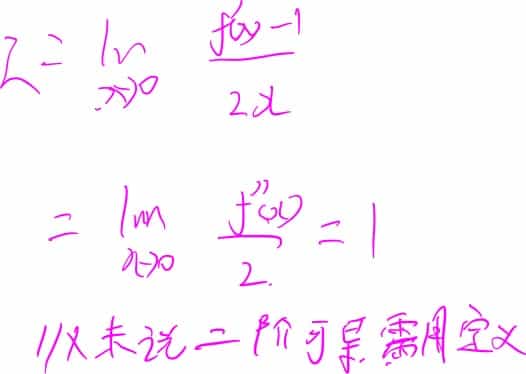 I = lim x→0 f'(x)-1 / 2x
= lim x→0 f''(x) / 2 = 1
//X未说二阶可导需用定义